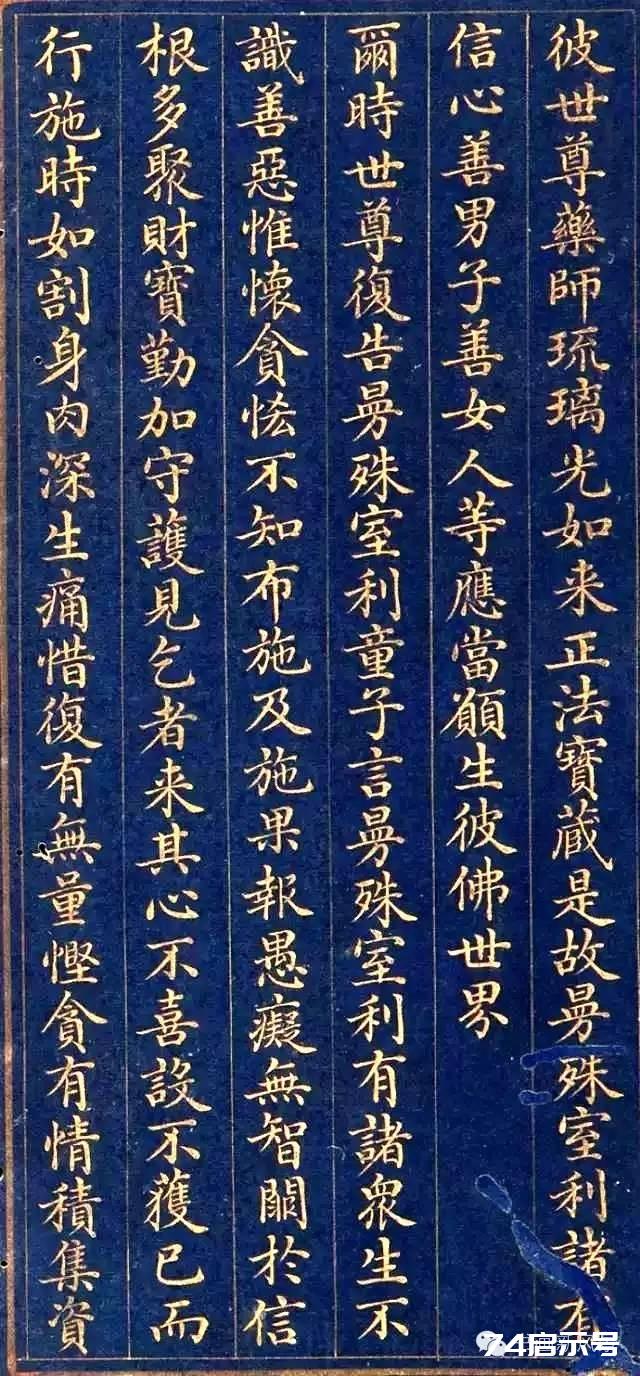 彼世尊藥師琉璃光如来正法寶蔵是故曼殊室利諸有
信心善男子善女人等應當願生彼佛世界
爾時世尊復告曼殊室利童子言曼殊室利有諸衆生不
識善惡惟懷貪恡不知布施及施果報愚癡無智闕於信
根多聚財寶勤加守護見乞者来其心不喜設不獲已而
行施時如割身肉深生痛惜復有無量慳貪有情積集資
74启示号